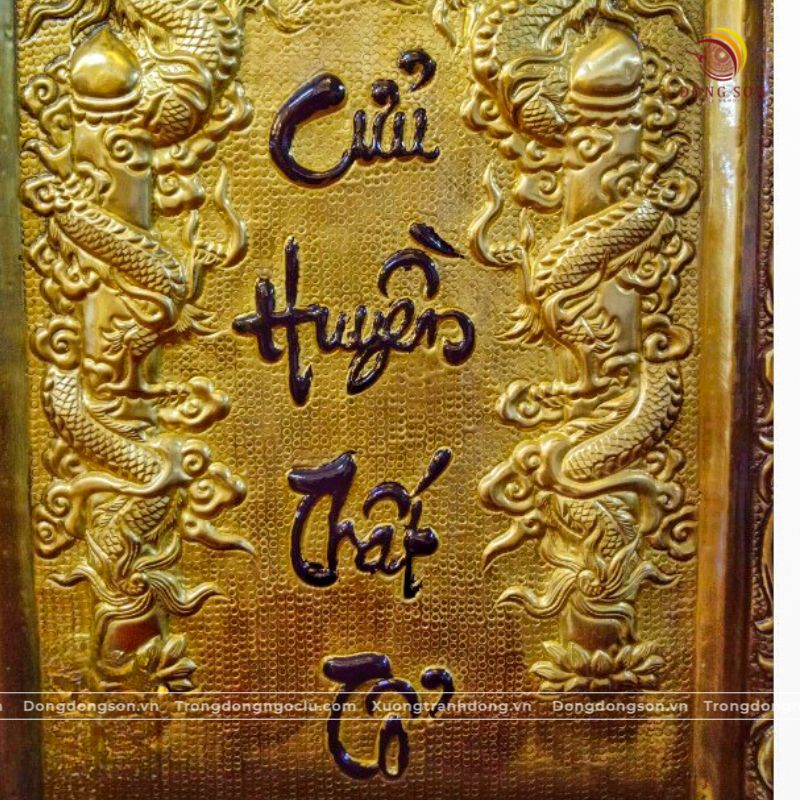 ĐỒNG SƠN
Cửu
Huyền
Thất
Tổ
Dongdongson.vn Trongdongngoclu.com Xuongtranhdong.vn Dongdongson.vn Trongdon